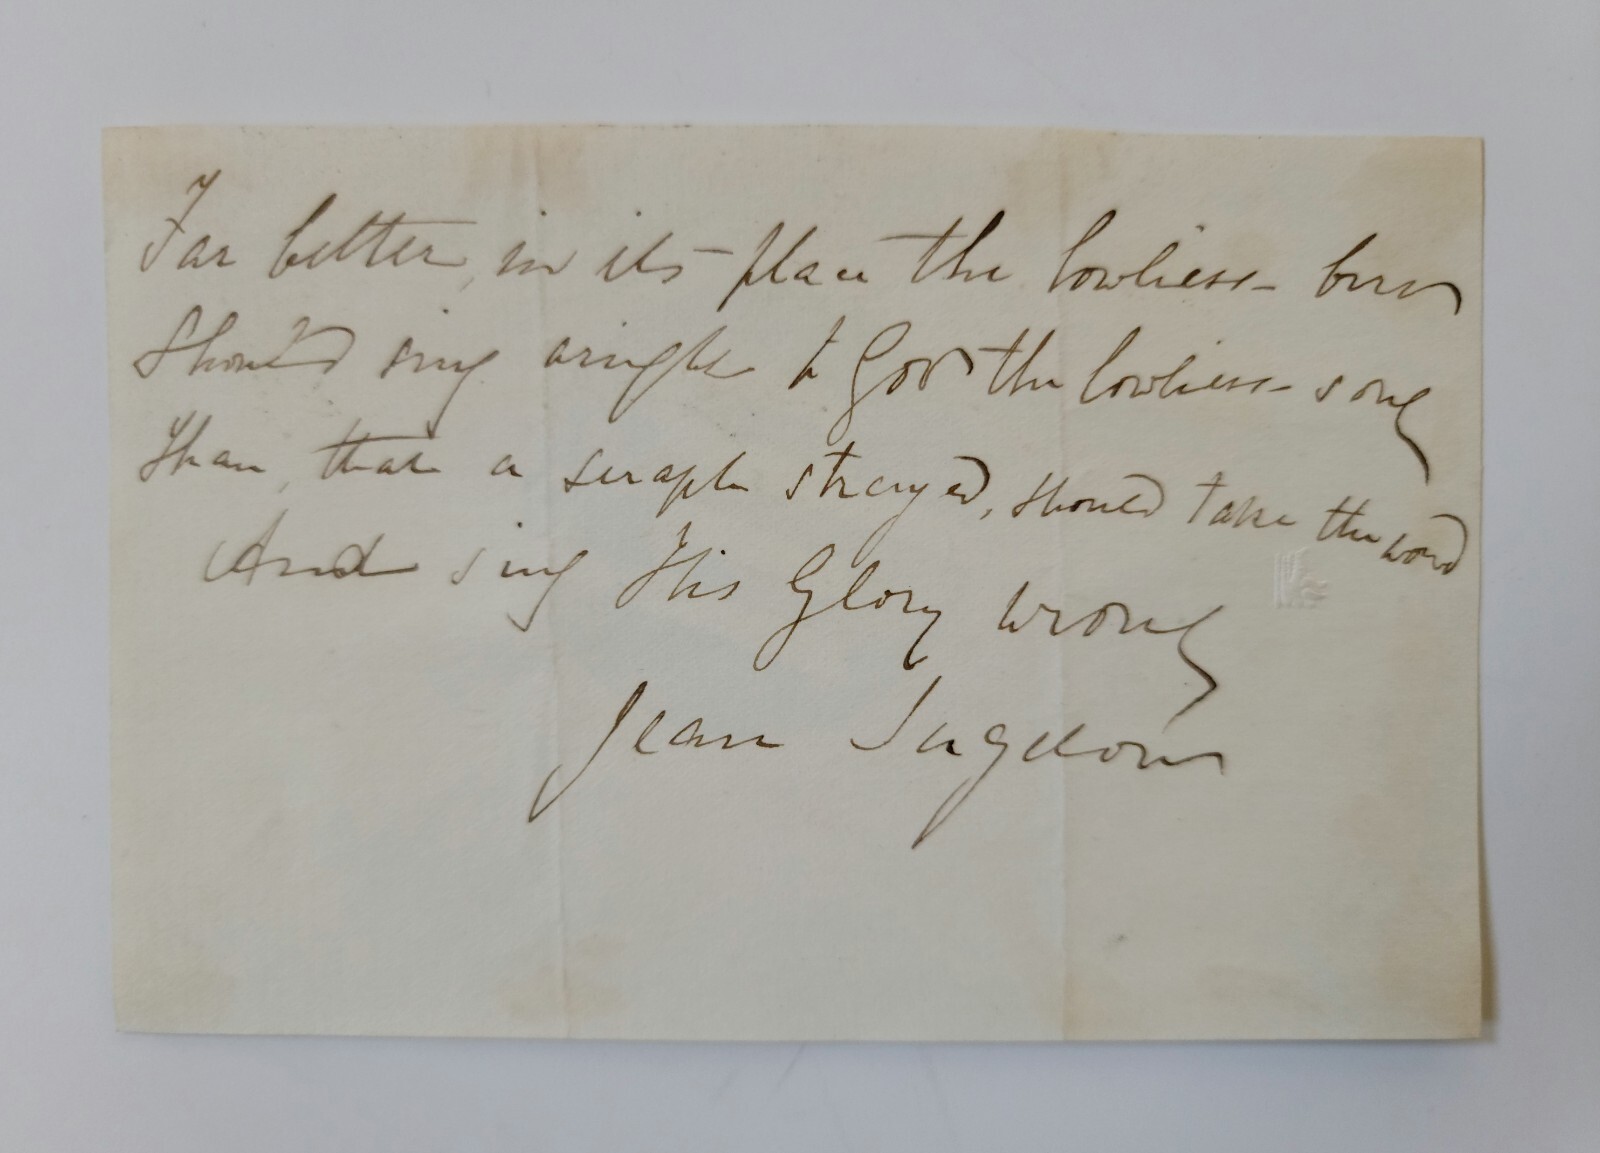 Far better, in its place the lowliest bird
Should sing aright to God the lowliest song
Than, that a seraph strayed, should take the word
And sing His Glory wrong
Jean Ingelow